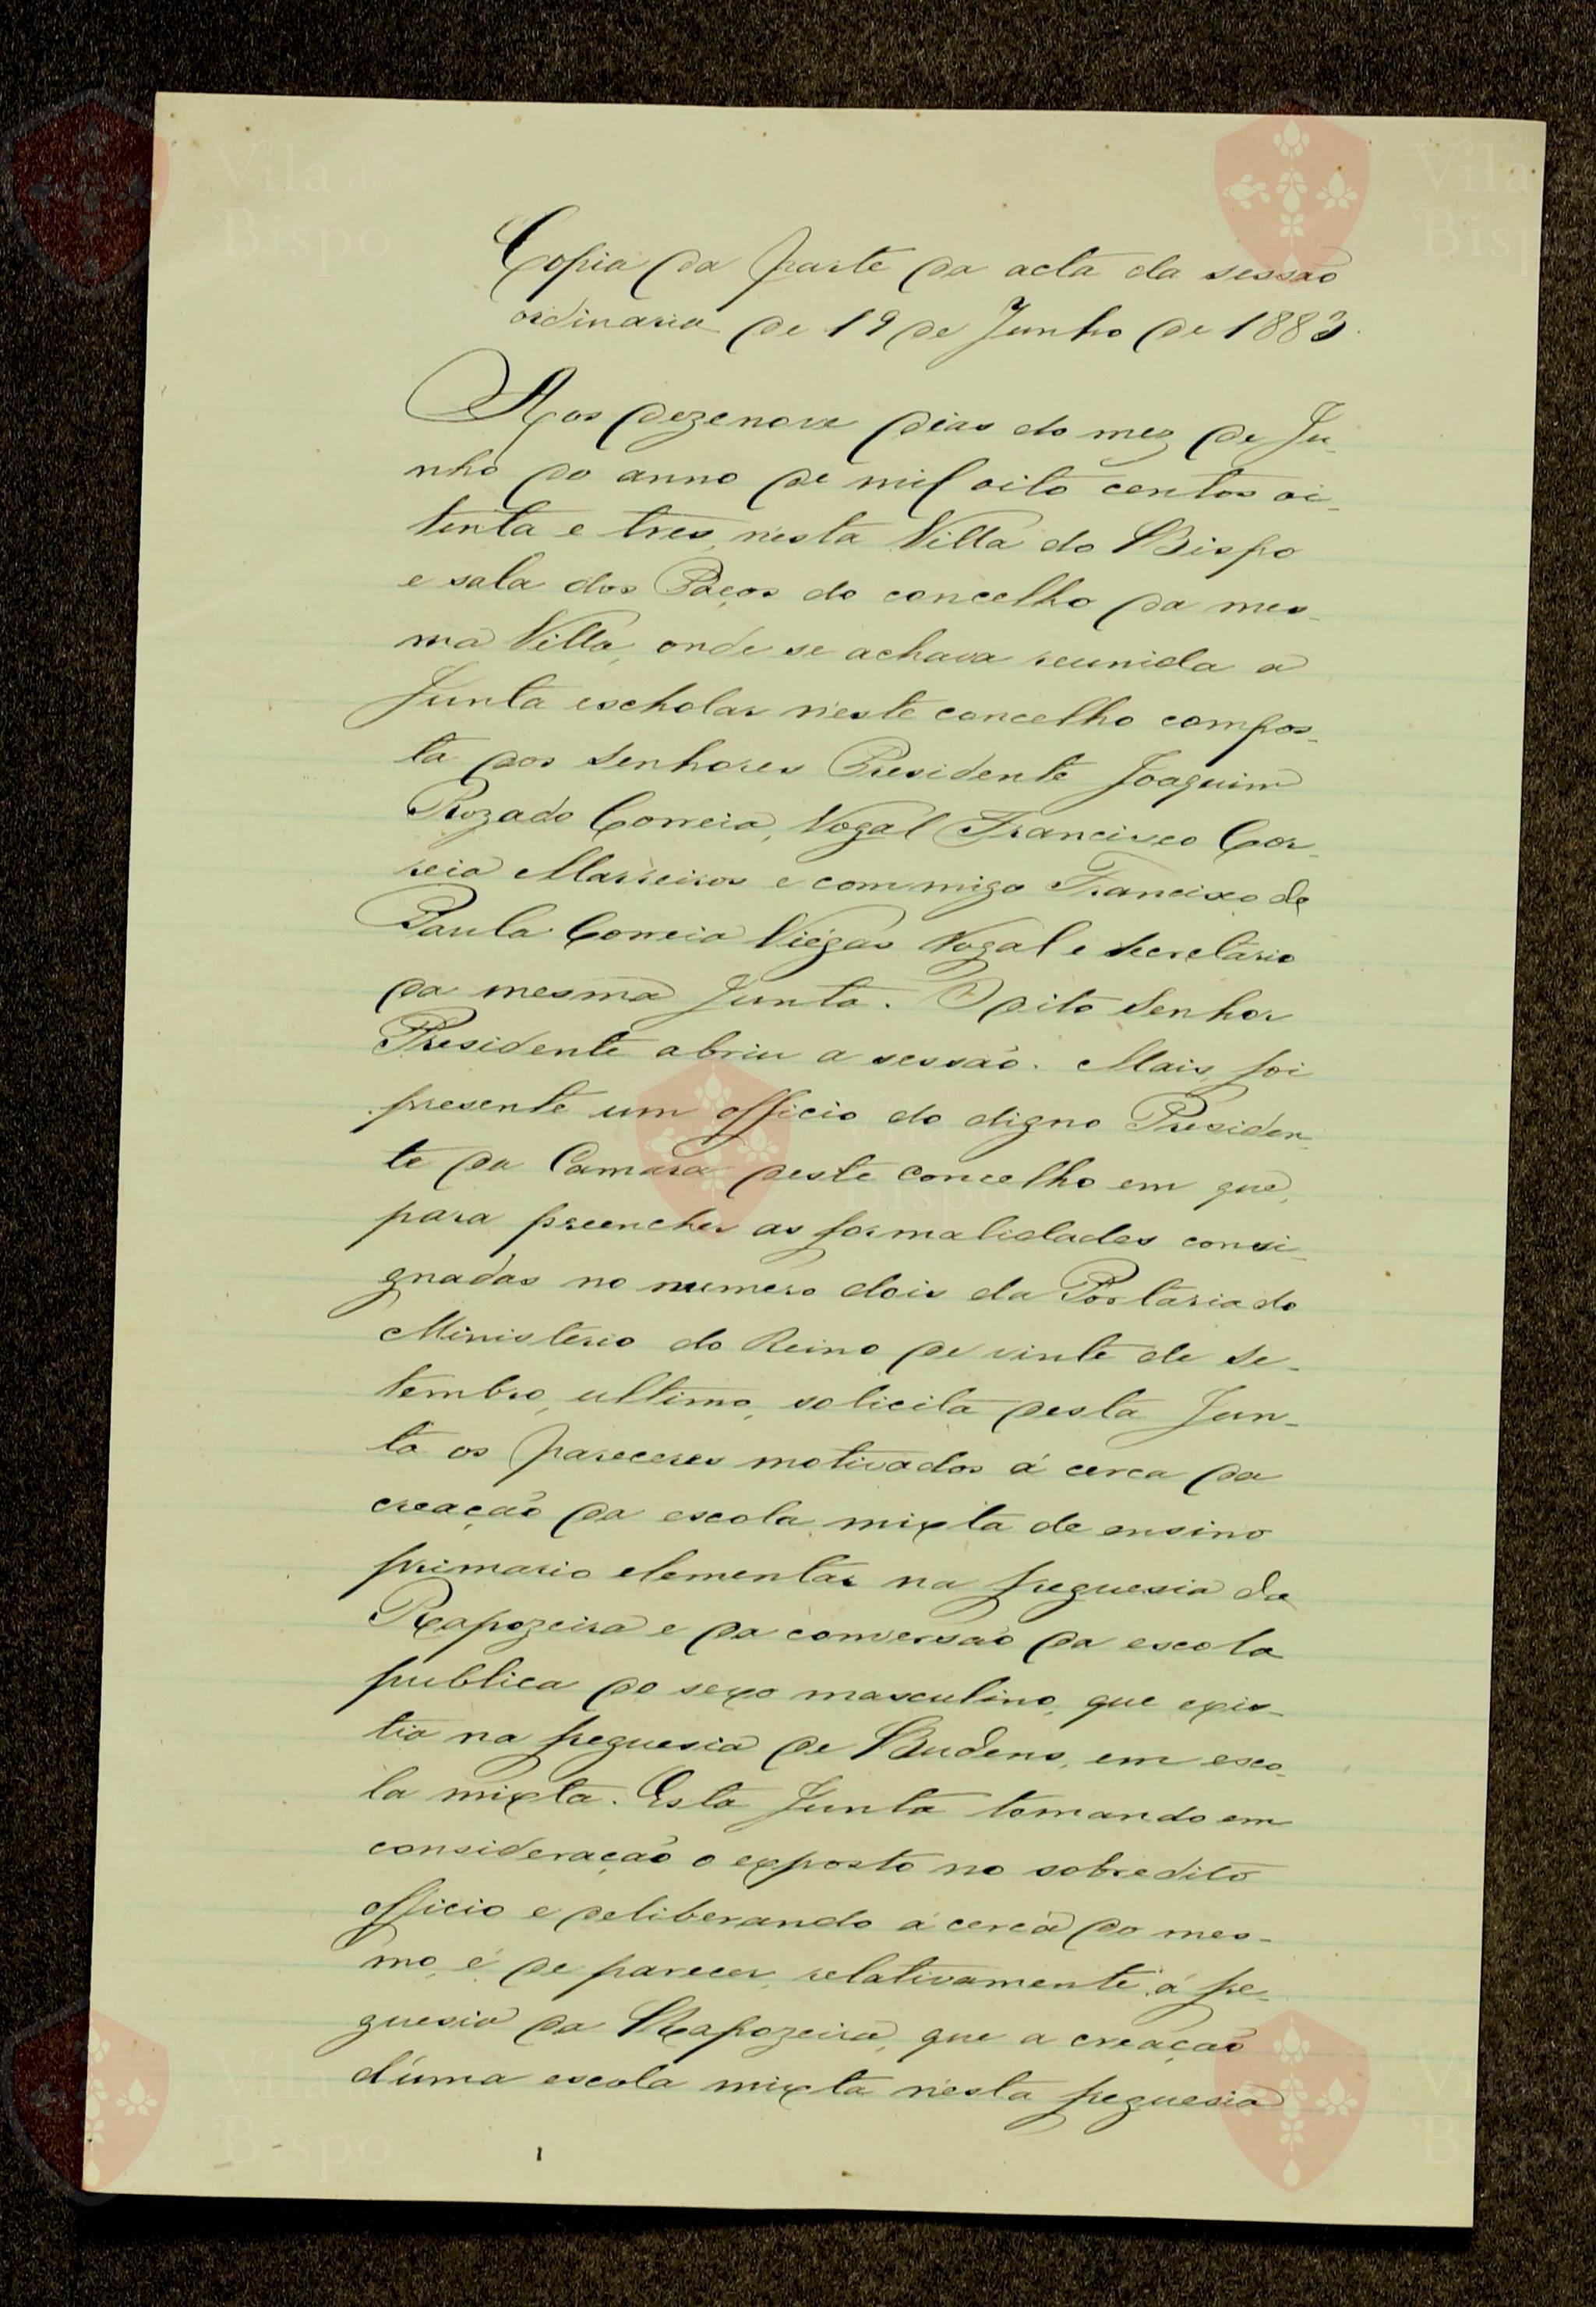 Copia da parte da acta da sessão
ordinaria de 19 de Junho de 1883.
Aos dezenove dias do mez de Ju-
nho do anno de mil oito centos oi-
tenta e tres, n'esta Villa do Bispo
e sala dos Paços do concelho da mes-
ma Villa, onde se achava reunida a
Junta escholar n'este concelho compos-
ta dos Senhores Presidente Joaquim
Rozado Correia, Vogal Francisco Cor-
reia Marreiros e commigo Francisco de
Paula Correia Viégas Vogal e Secretario
da mesma Junta. O dito Senhor
Presidente abriu a sessão. Mais foi
presente um officio do digno Presiden-
te da Camara deste concelho em que,
para preencher as formalidades consi-
gnadas no numero dois da Portaria do
Ministerio do Reino de vinte de Se-
tembro, ultimo, solicita desta Jun-
ta os pareceres motivados á cerca da
creação da escola mixta de ensino
primario elementar na freguesia da
Rapozeira e da conversão da escola
publica do sexo masculino, que exis-
tia na freguesia de Budens, em esco-
la mixta. Esta Junta tomando em
consideração o exposto no sobredito
officio e deliberando á cerca do mes-
mo, é de parecer, relativamente á fre-
guesia da Rapozeira, que a creação
d'uma escola mixta n'esta freguesia
Vila do
Bispo
Vila
Bisp
Bispo
Bispo